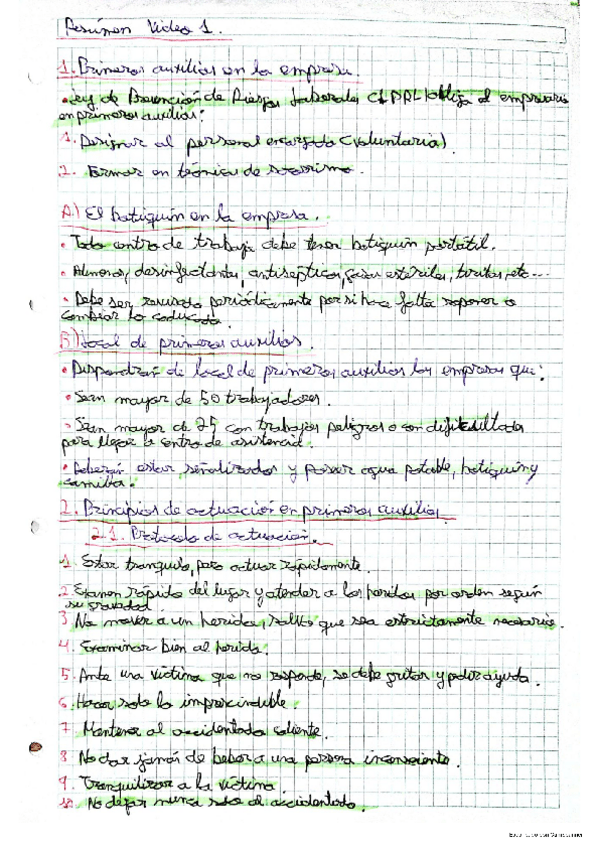 Resúmen Video 1.
1. Primeros auxilios en la empresa.
• Ley de Prevención de Riesgos Laborales (LPRL) obliga al empresario
en primeros auxilios:
1. Designar al personal encargado (voluntario).
2. Formar en técnicas de socorrismo.
A) El botiquín en la empresa.
• Todo centro de trabajo debe tener botiquín portátil.
• desinfectantes, antisépticos, gasas estériles, tiritas, etc...
• Debe ser revisado periódicamente por si hace falta reponer o
cambiar lo caducado.
B) Local de primeros auxilios.
• Dispondrán de local de primeros auxilios las empresas que:
• Sean mayor de 50 trabajadores.
• Sean mayor de 25 con trabajos peligros o con dificultades
para llegar a centro de asistencia.
• Deberán estar señalizados y poseer agua potable, botiquín y
camilla.
2. Principios de actuación en primeros auxilios.
2.1. Protocolo de actuación.
1. Estar tranquilo, pero actuar rápidamente.
2. Examen rápido del lugar y atender a los heridos por orden según
su gravedad.
3. No mover a un herido, salvo que sea estrictamente necesario.
4. Examinar bien al herido.
5. Ante una víctima que no responde, se debe gritar y pedir ayuda.
6. Hacer solo lo imprescindible.
7. Mantener al accidentado caliente.
8. No dar jamás de beber a una persona inconsciente.
9. Tranquilizar a la víctima.
10. No dejar nunca solo al accidentado.